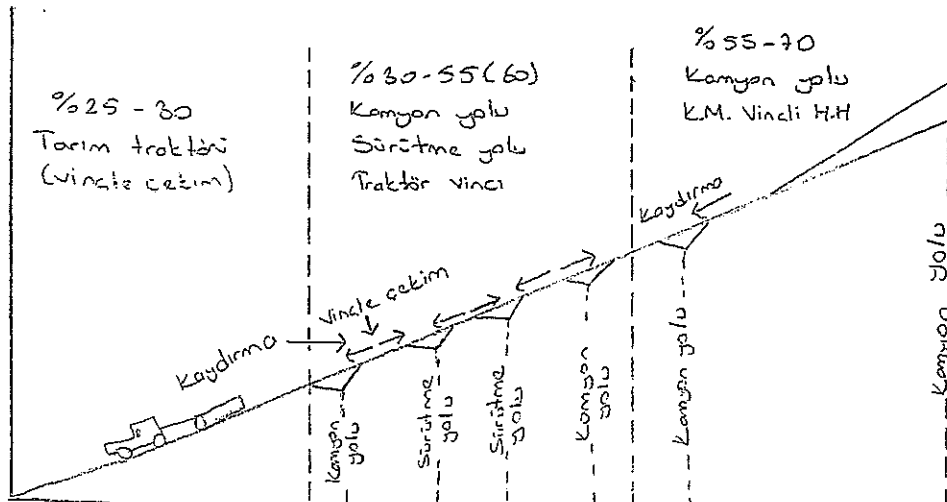 %25-30
Tarım traktörü
(vinçle çekim)
%30-55(60)
Kamyon yolu
Sürütme yolu
Traktör vinci
%55-70
Kamyon yolu
K.M. Vinçli H.H
Kaydırma
Kaydırma
Vinçle çekim
Kamyon
yolu
Sürütme
yolu
Sürütme
yolu
Kamyon
yolu
Kamyon yolu
Kamyon yolu